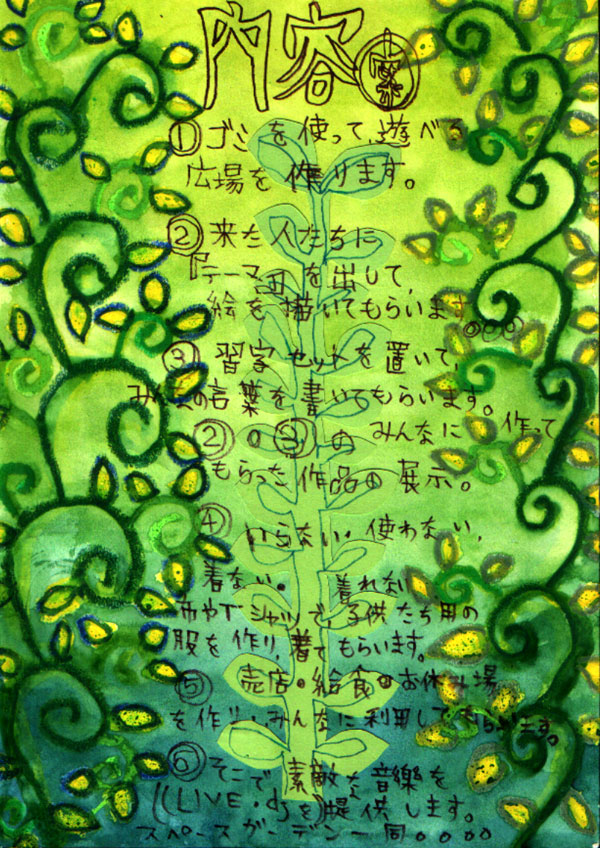 内容
①ゴミを使って、遊べる
広場を作ります。
②来た人たちに
『テーマ』を出して、
絵を描いてもらいます。
③習字セットを置いて、
みんなの言葉を書いてもらいます。
②。③のみんなに作って
もらった作品の展示。
④いらない・使わない、
着ない。着れない
布やTシャツで子供たち用の
服を作り、着てもらいます。
⑤売店。給食。お休み場
を作り・みんなに利用してもらいます。
⑥そこで素敵な音楽を
((LIVE・dj))を提供します。
スペースガーデン一同。。。。